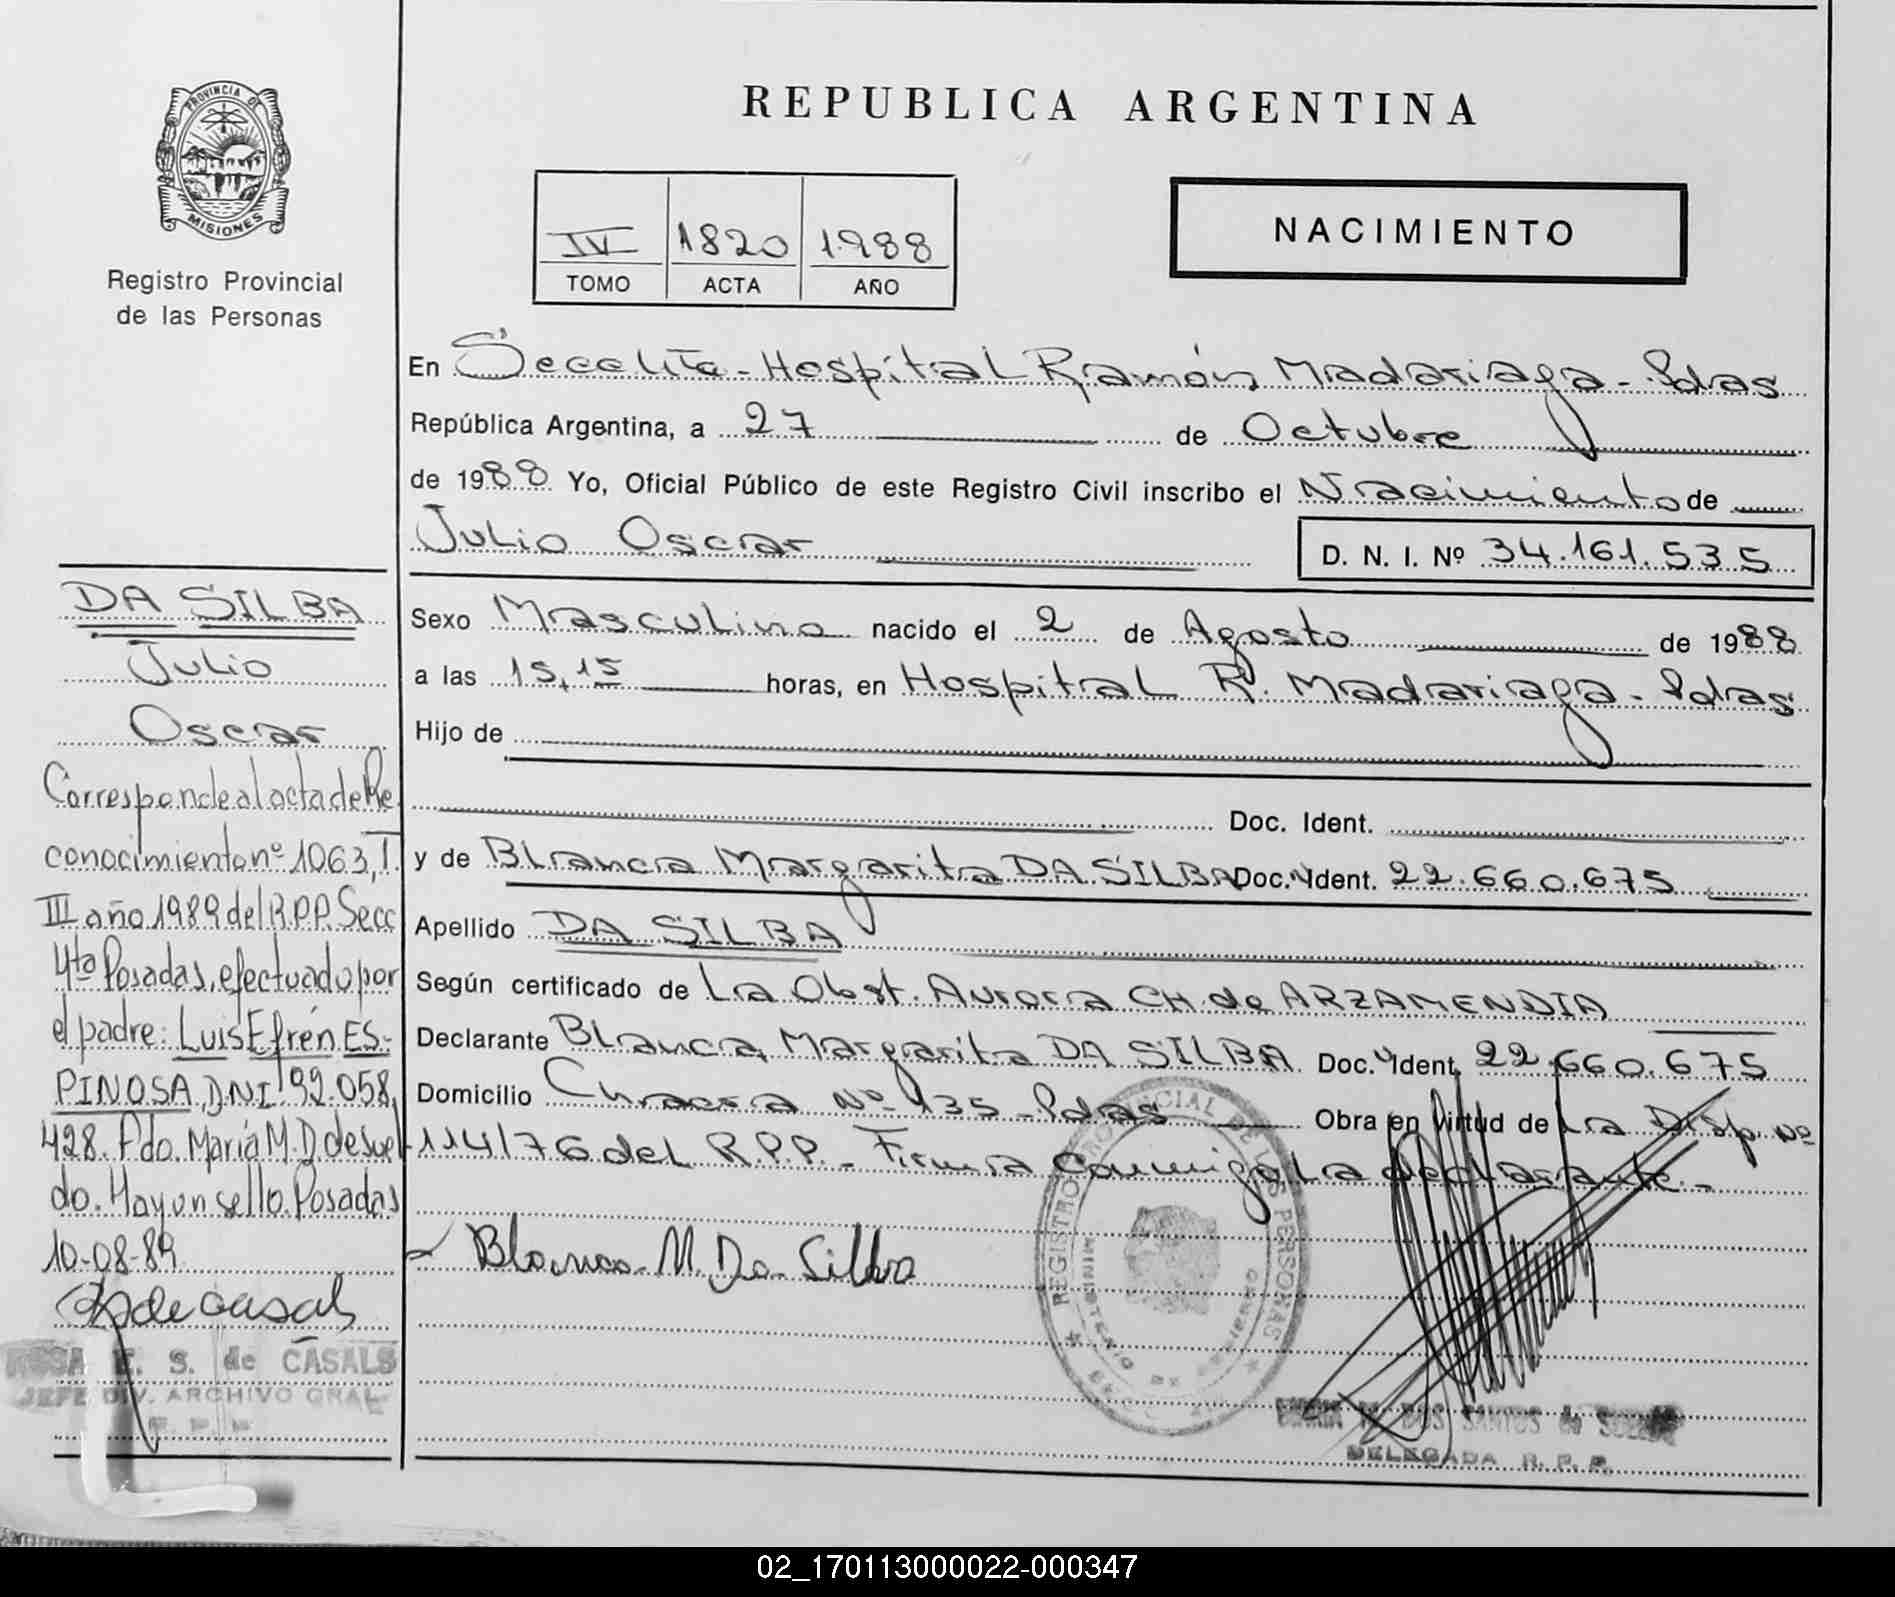 PROVINCIA DE
MISIONES
Registro Provincial
de las Personas
REPUBLICA ARGENTINA
IV 1820 1988
TOMO ACTA AÑO
NACIMIENTO
En Secc 4ta - Hospital Ramón Madariaga - Pdas
República Argentina, a 27 de Octubre
de 1988 Yo, Oficial Público de este Registro Civil inscribo el Nacimiento de
Julio Oscar D. N. I. Nº 34.161.535
Sexo Masculino nacido el 2 de Agosto de 1988
a las 15,15 horas, en Hospital R. Madariaga - Pdas
Hijo de
Doc. Ident.
y de Blanca Margarita DA SILBA Doc. Ident. 22.660.675
Apellido DA SILBA
Según certificado de La Obst. Aurora CH. de ARZAMENDIA
Declarante Blanca Margarita DA SILBA Doc. Ident. 22.660.675
Domicilio Chacra Nº 135 - Pdas Obra en virtud de La Disp. Nº
114/76 del R.P.P. - Firma conmigo La declarante.-
Blanca M. Da Silba
REGISTRO PROVINCIAL DE LAS PERSONAS
MINISTERIO DE GOBIERNO
DOS SANTOS de
DELEGADA R. P. P.
DA SILBA
Julio
Oscar
Corresponde al acta de Re
conocimiento nº 1063, T.
III año 1989 del R.P.P. Secc
4ta Posadas, efectuado por
el padre: Luis Efrén ES-
PINOSA, DNI 92.058.
428. Fdo. María M. D. de suel
do. Hay un sello. Posadas
10-08-89
de Casals
ROSA E. S. de CASALS
JEFE DIV. ARCHIVO GRAL
R. P. P.
02_170113000022-000347